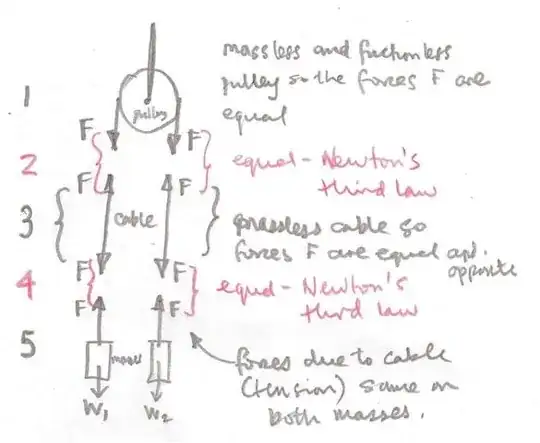 massless and frictionless
pulley so the forces F are
equal
1
pulley
F F
2
equal - Newton's
third law
F F
3
cable
massless cable so
forces F are equal and
opposite
F F
4
equal - Newton's
third law
F F
5
mass
forces due to cable
(tension) same on
both masses.
W1 W2